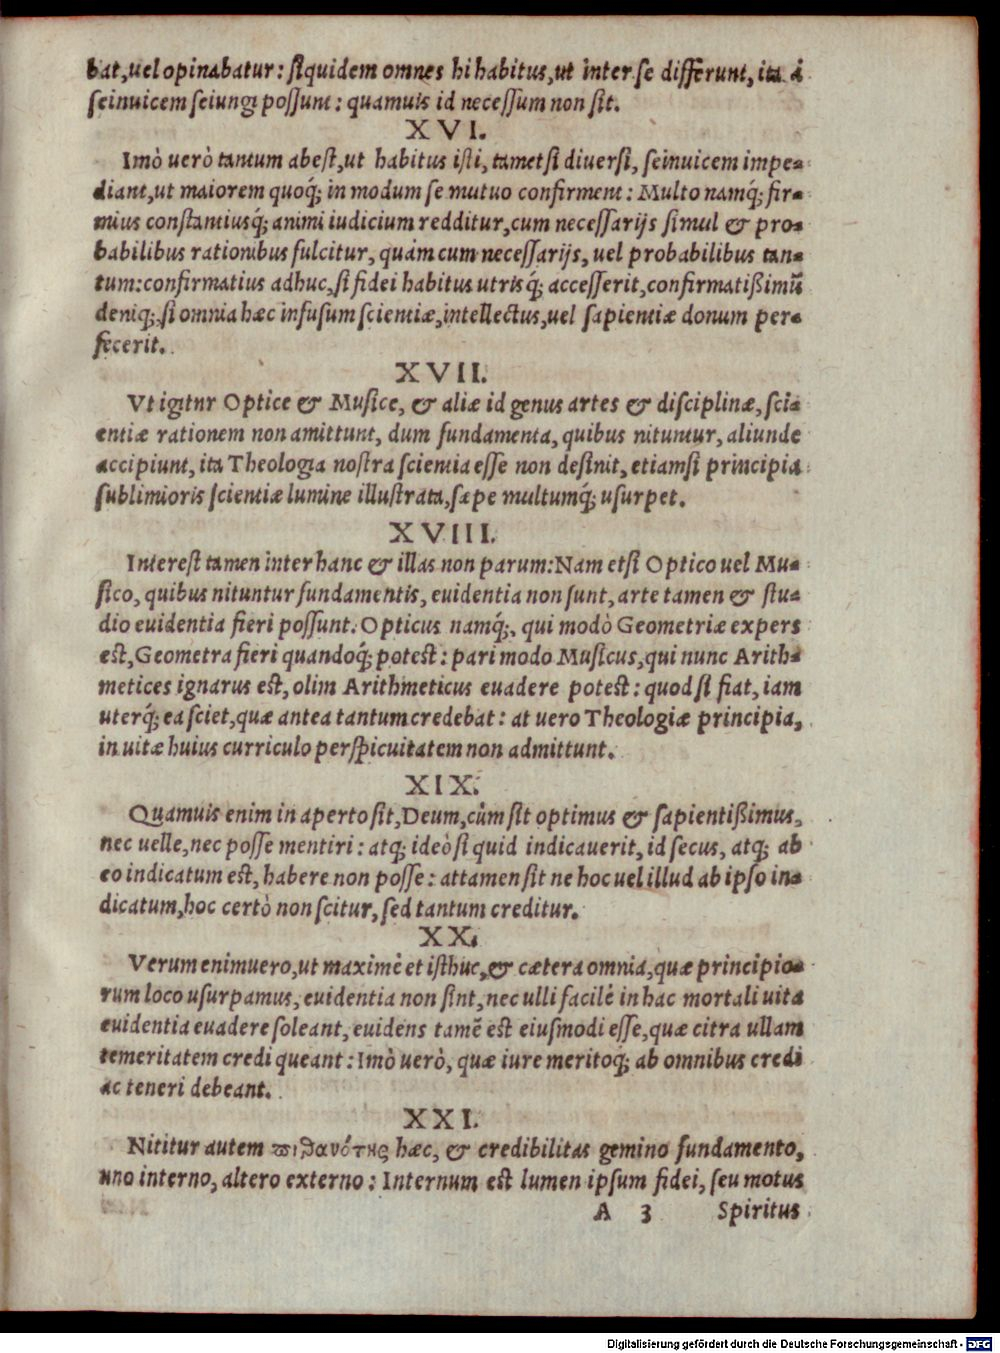 bat,uel opinabatur: siquidem omnes hi habitus,ut inter se differunt, ita á
seinuicem seiungi possunt: quamuis id necessum non sit.
XVI.
Imò uerò tantum abest,ut habitus isti, tametsi diuersi, seinuicem impe-
diant,ut maiorem quoq́; in modum se mutuo confirment: Multo namq́; fir-
mius constantiusq́; animi iudicium redditur,cum necessarijs simul & pro-
babilibus rationibus fulcitur, quàm cum necessarijs, uel probabilibus tan-
tum:confirmatius adhuc, si fidei habitus utrisq́; accesserit,confirmatißimũ
deniq;, si omnia hæc infusum scientiæ,intellectus,uel sapientiæ donum per-
fecerit.
XVII.
Vt igitur Optice & Musice, & aliæ id genus artes & disciplinæ, sci-
entiæ rationem non amittunt, dum fundamenta, quibus nituntur, aliunde
accipiunt, ita Theologia nostra scientia esse non desinit, etiamsi principia
sublimioris scientiæ lumine illustrata, sæpe multumq́; usurpet.
XVIII.
Interest tamen inter hanc & illas non parum: Nam etsi Optico uel Mu-
sico, quibus nituntur fundamentis, euidentia non sunt, arte tamen & stu-
dio euidentia fieri possunt. Opticus namq́;, qui modò Geometriæ expers
est, Geometra fieri quandoq́; potest: pari modo Musicus,qui nunc Arith-
metices ignarus est, olim Arithmeticus euadere potest: quod si fiat, iam
uterq́; ea sciet,quæ antea tantum credebat: at uero Theologiæ principia,
in uitæ huius curriculo perspicuitatem non admittunt.
XIX.
Quamuis enim in aperto sit, Deum,cùm sit optimus & sapientißimus,
nec uelle,nec posse mentiri: atq; ideò si quid indicauerit, id secus, atq; ab
eo indicatum est, habere non posse: attamen sit ne hoc uel illud ab ipso in-
dicatum,hoc certò non scitur, sed tantum creditur.
XX.
Verumenimuero,ut maximè et isthuc, & cætera omnia,quæ principio-
rum loco usurpamus, euidentia non sint, nec ulli facilè in hac mortali uita
euidentia euadere soleant, euidens tamẽ est eiusmodi esse,quæ citra ullam
temeritatem credi queant: Imò uerò, quæ iure meritoq́; ab omnibus credi
ac teneri debeant.
XXI.
Nititur autem πιθανότης hæc, & credibilitas gemino fundamento,
uno interno, altero externo: Internum est lumen ipsum fidei, seu motus
A 3 Spiritus
Digitalisierung gefördert durch die Deutsche Forschungsgemeinschaft - DFG